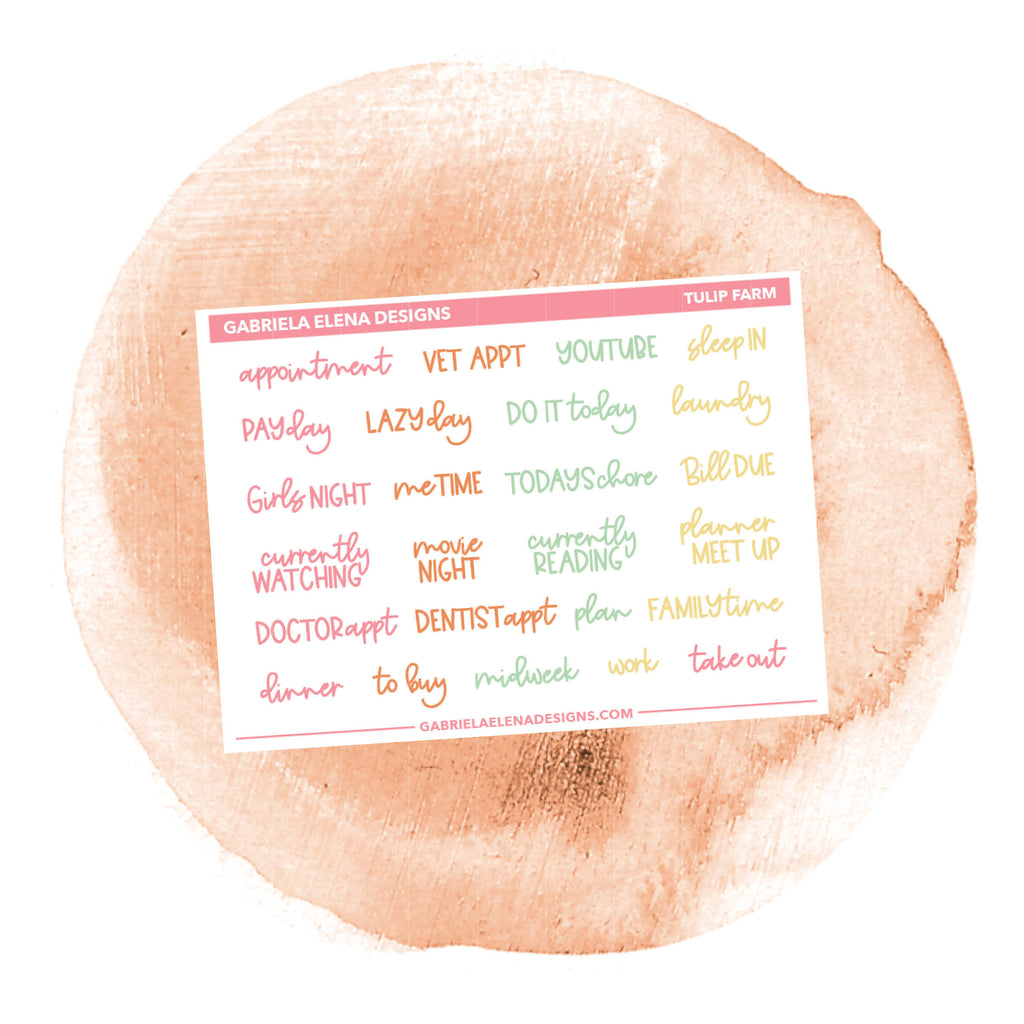 GABRIELA ELENA DESIGNS TULIP FARM
appointment VET APPT YOUTUBE sleep IN
PAY day LAZY day DO IT today laundry
Girls NIGHT me TIME TODAYS chore Bill DUE
currently movie currently planner
WATCHING NIGHT READING MEET UP
DOCTOR appt DENTIST appt plan FAMILY time
dinner to buy midweek work take out
GABRIELAELENADESIGNS.COM